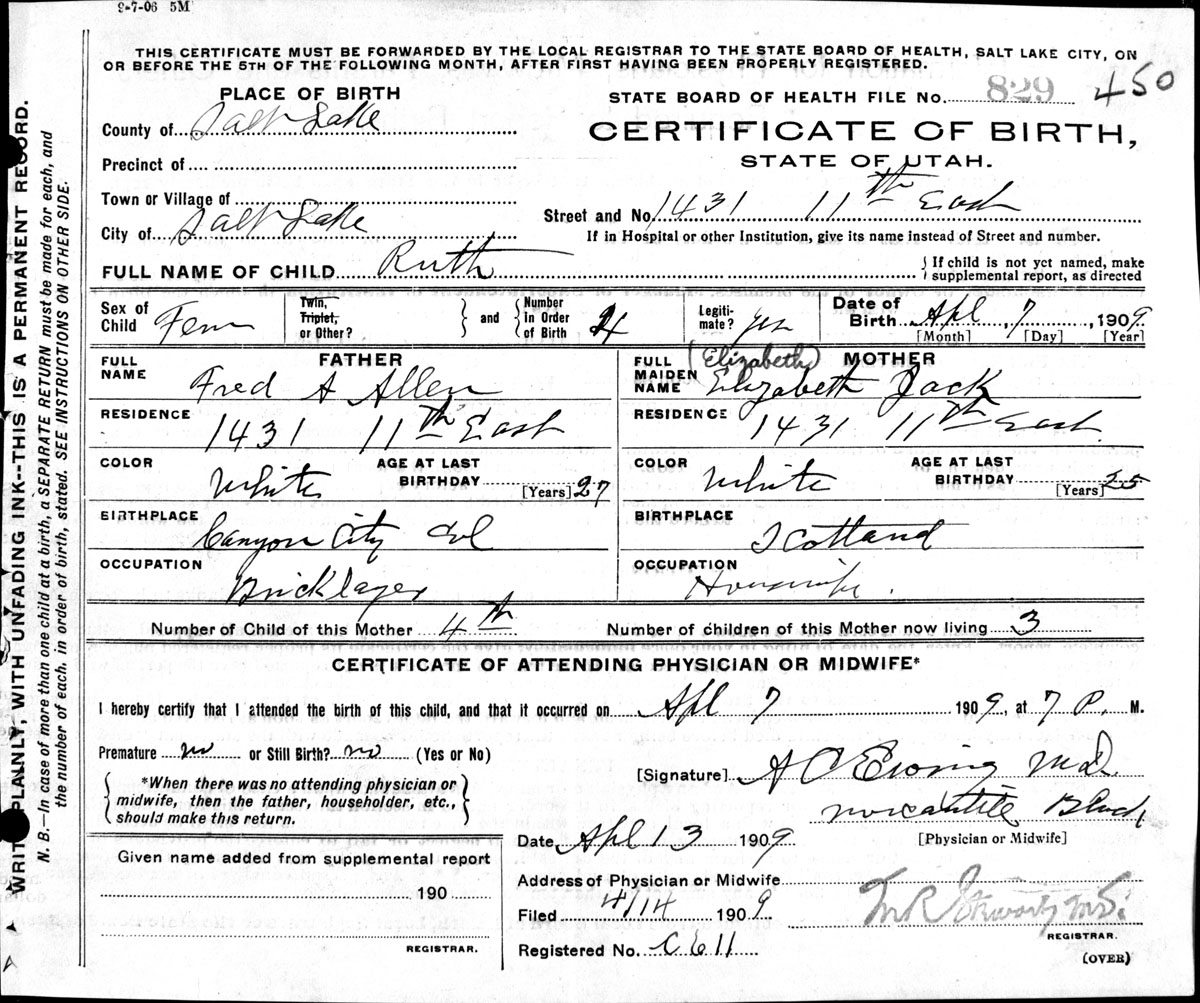 9-7-06 5M
THIS CERTIFICATE MUST BE FORWARDED BY THE LOCAL REGISTRAR TO THE STATE BOARD OF HEALTH, SALT LAKE CITY, ON
OR BEFORE THE 5TH OF THE FOLLOWING MONTH, AFTER FIRST HAVING BEEN PROPERLY REGISTERED.
PLACE OF BIRTH
STATE BOARD OF HEALTH FILE No. 829 450
County of Salt Lake
CERTIFICATE OF BIRTH,
STATE OF UTAH.
Precinct of
Town or Village of
Street and No. 1431 11th East
City of Salt Lake
If in Hospital or other Institution, give its name instead of Street and number.
FULL NAME OF CHILD Ruth
{If child is not yet named, make
supplemental report, as directed
Sex of Child Fem
Twin, Triplet, or Other? } and { Number in Order of Birth 4
Legiti-mate? yes
Date of Birth Apl, 7, 1909
[Month] [Day] [Year]
FATHER
FULL NAME Fred A Allen
RESIDENCE 1431 11th East
COLOR White AGE AT LAST BIRTHDAY 27
[Years]
BIRTHPLACE Canyon City Col
OCCUPATION Bricklayer
MOTHER
(Elizabeth)
FULL MAIDEN NAME Elizabeth Jack
RESIDENCE 1431 11th East
COLOR White AGE AT LAST BIRTHDAY 25
[Years]
BIRTHPLACE Scotland
OCCUPATION Housewife.
Number of Child of this Mother 4th
Number of children of this Mother now living 3
CERTIFICATE OF ATTENDING PHYSICIAN OR MIDWIFE*
I hereby certify that I attended the birth of this child, and that it occurred on Apl 7 1909, at 7 P. M.
Premature no or Still Birth? no (Yes or No)
*When there was no attending physician or
midwife, then the father, householder, etc.,
should make this return.
[Signature] A C Ewing M.D.
Mercantile Block
[Physician or Midwife]
Date Apl 13 1909
Given name added from supplemental report
190
REGISTRAR.
Address of Physician or Midwife
Filed 4/14 1909
Registered No.
REGISTRAR.
(OVER)
WRITE PLAINLY, WITH UNFADING INK--THIS IS A PERMANENT RECORD.
N. B.—In case of more than one child at a birth, a SEPARATE RETURN must be made for each, and
the number of each, in order of birth, stated. SEE INSTRUCTIONS ON OTHER SIDE.